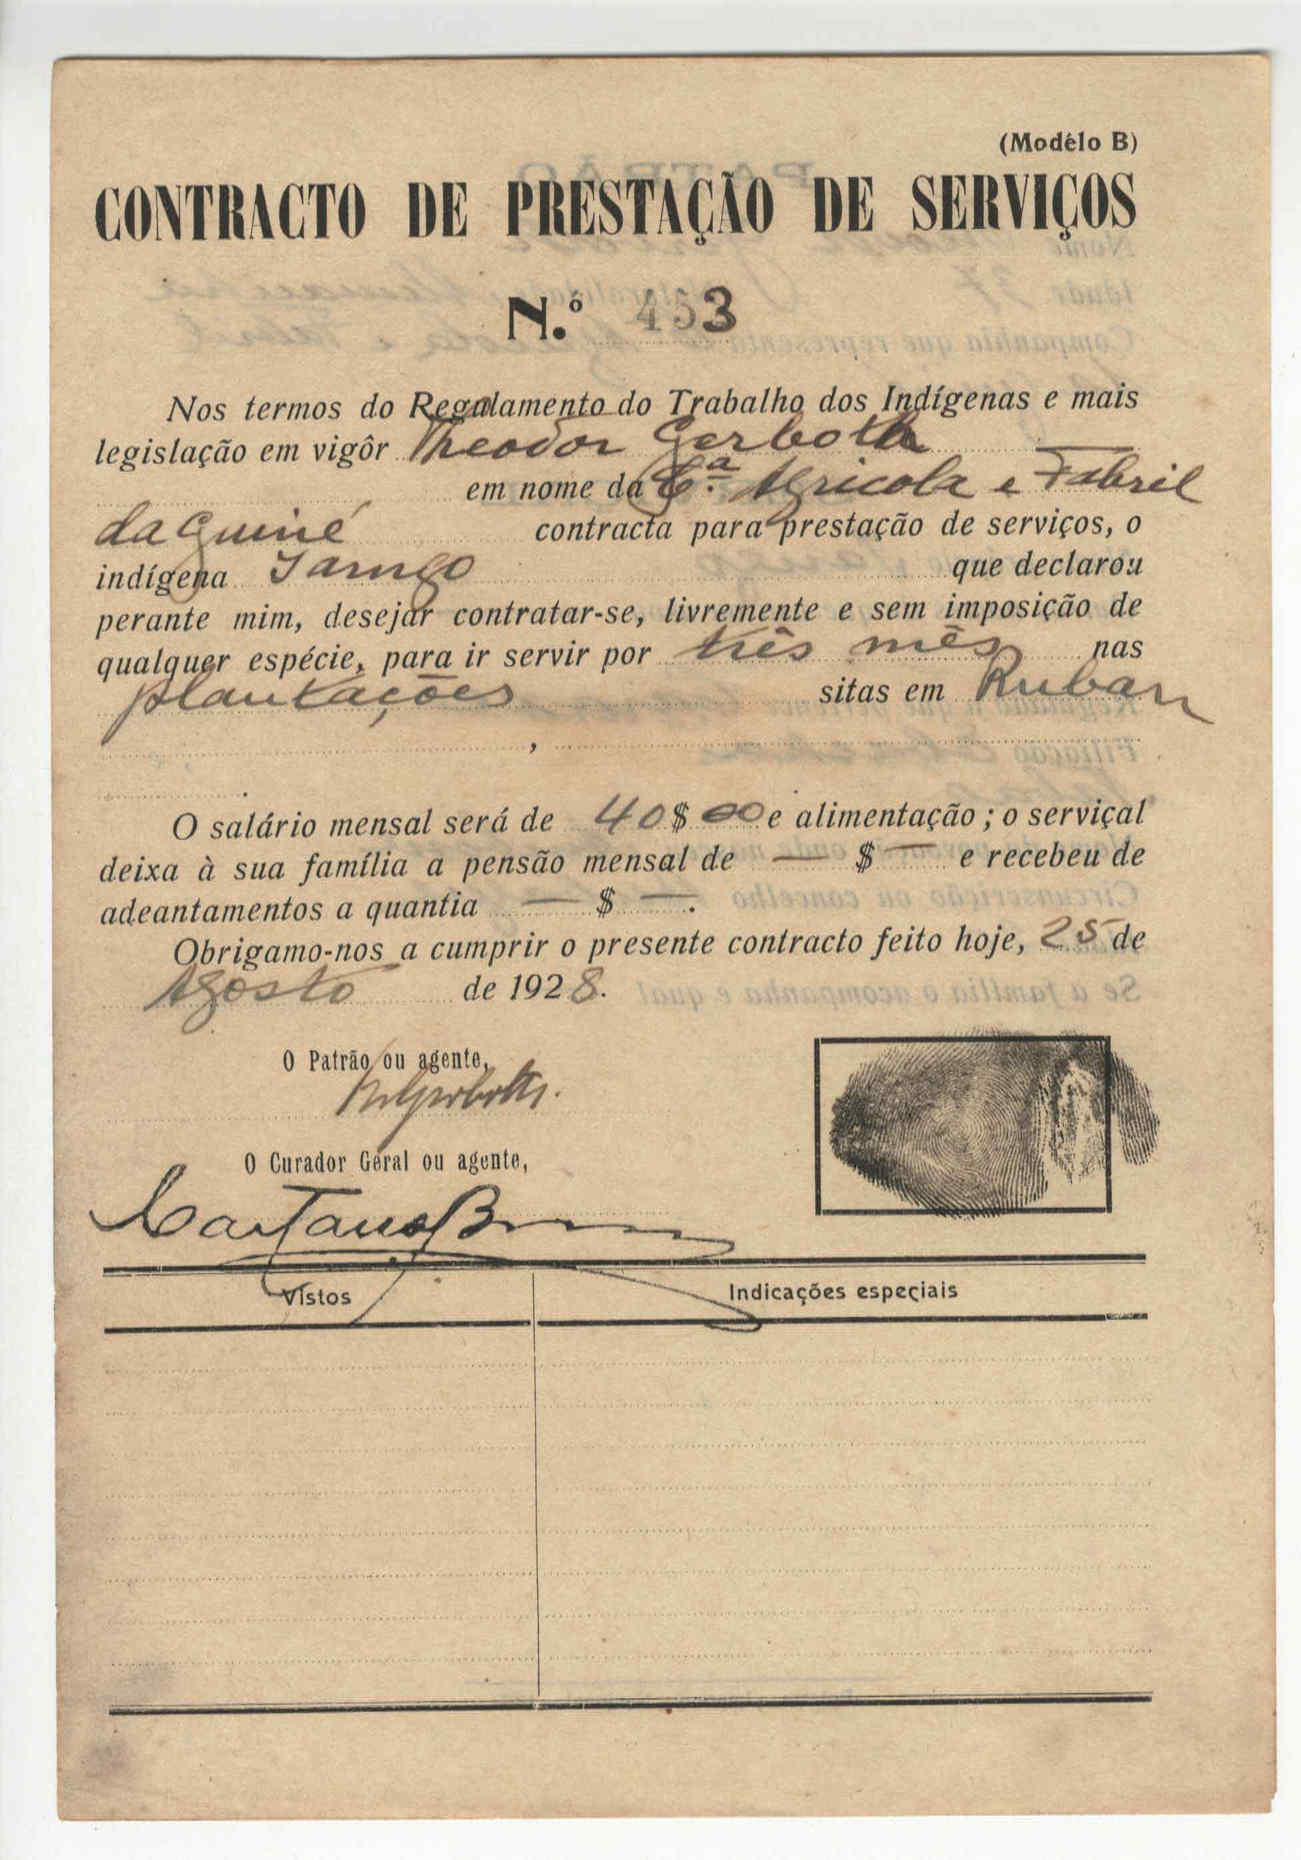 (Modêlo B)
CONTRACTO DE PRESTAÇÃO DE SERVIÇOS
N.º 453
Nos termos do Regulamento do Trabalho dos Indígenas e mais
legislação em vigôr Theodor Gerboth
em nome da C.ª Agricola e Fabril
da Guiné contracta para prestação de serviços, o
indígena que declarou
perante mim, desejar contratar-se, livremente e sem imposição de
qualquer espécie, para ir servir por três mês nas
plantações sitas em Ruban
O salário mensal será de 40$00 e alimentação; o serviçal
deixa à sua família a pensão mensal de — $ — e recebeu de
adeantamentos a quantia — $ —.
Obrigamo-nos a cumprir o presente contracto feito hoje, 25 de
Agosto de 1928.
O Patrão ou agente,
O Curador Geral ou agente,
Caetano
Vistos Indicações especiais